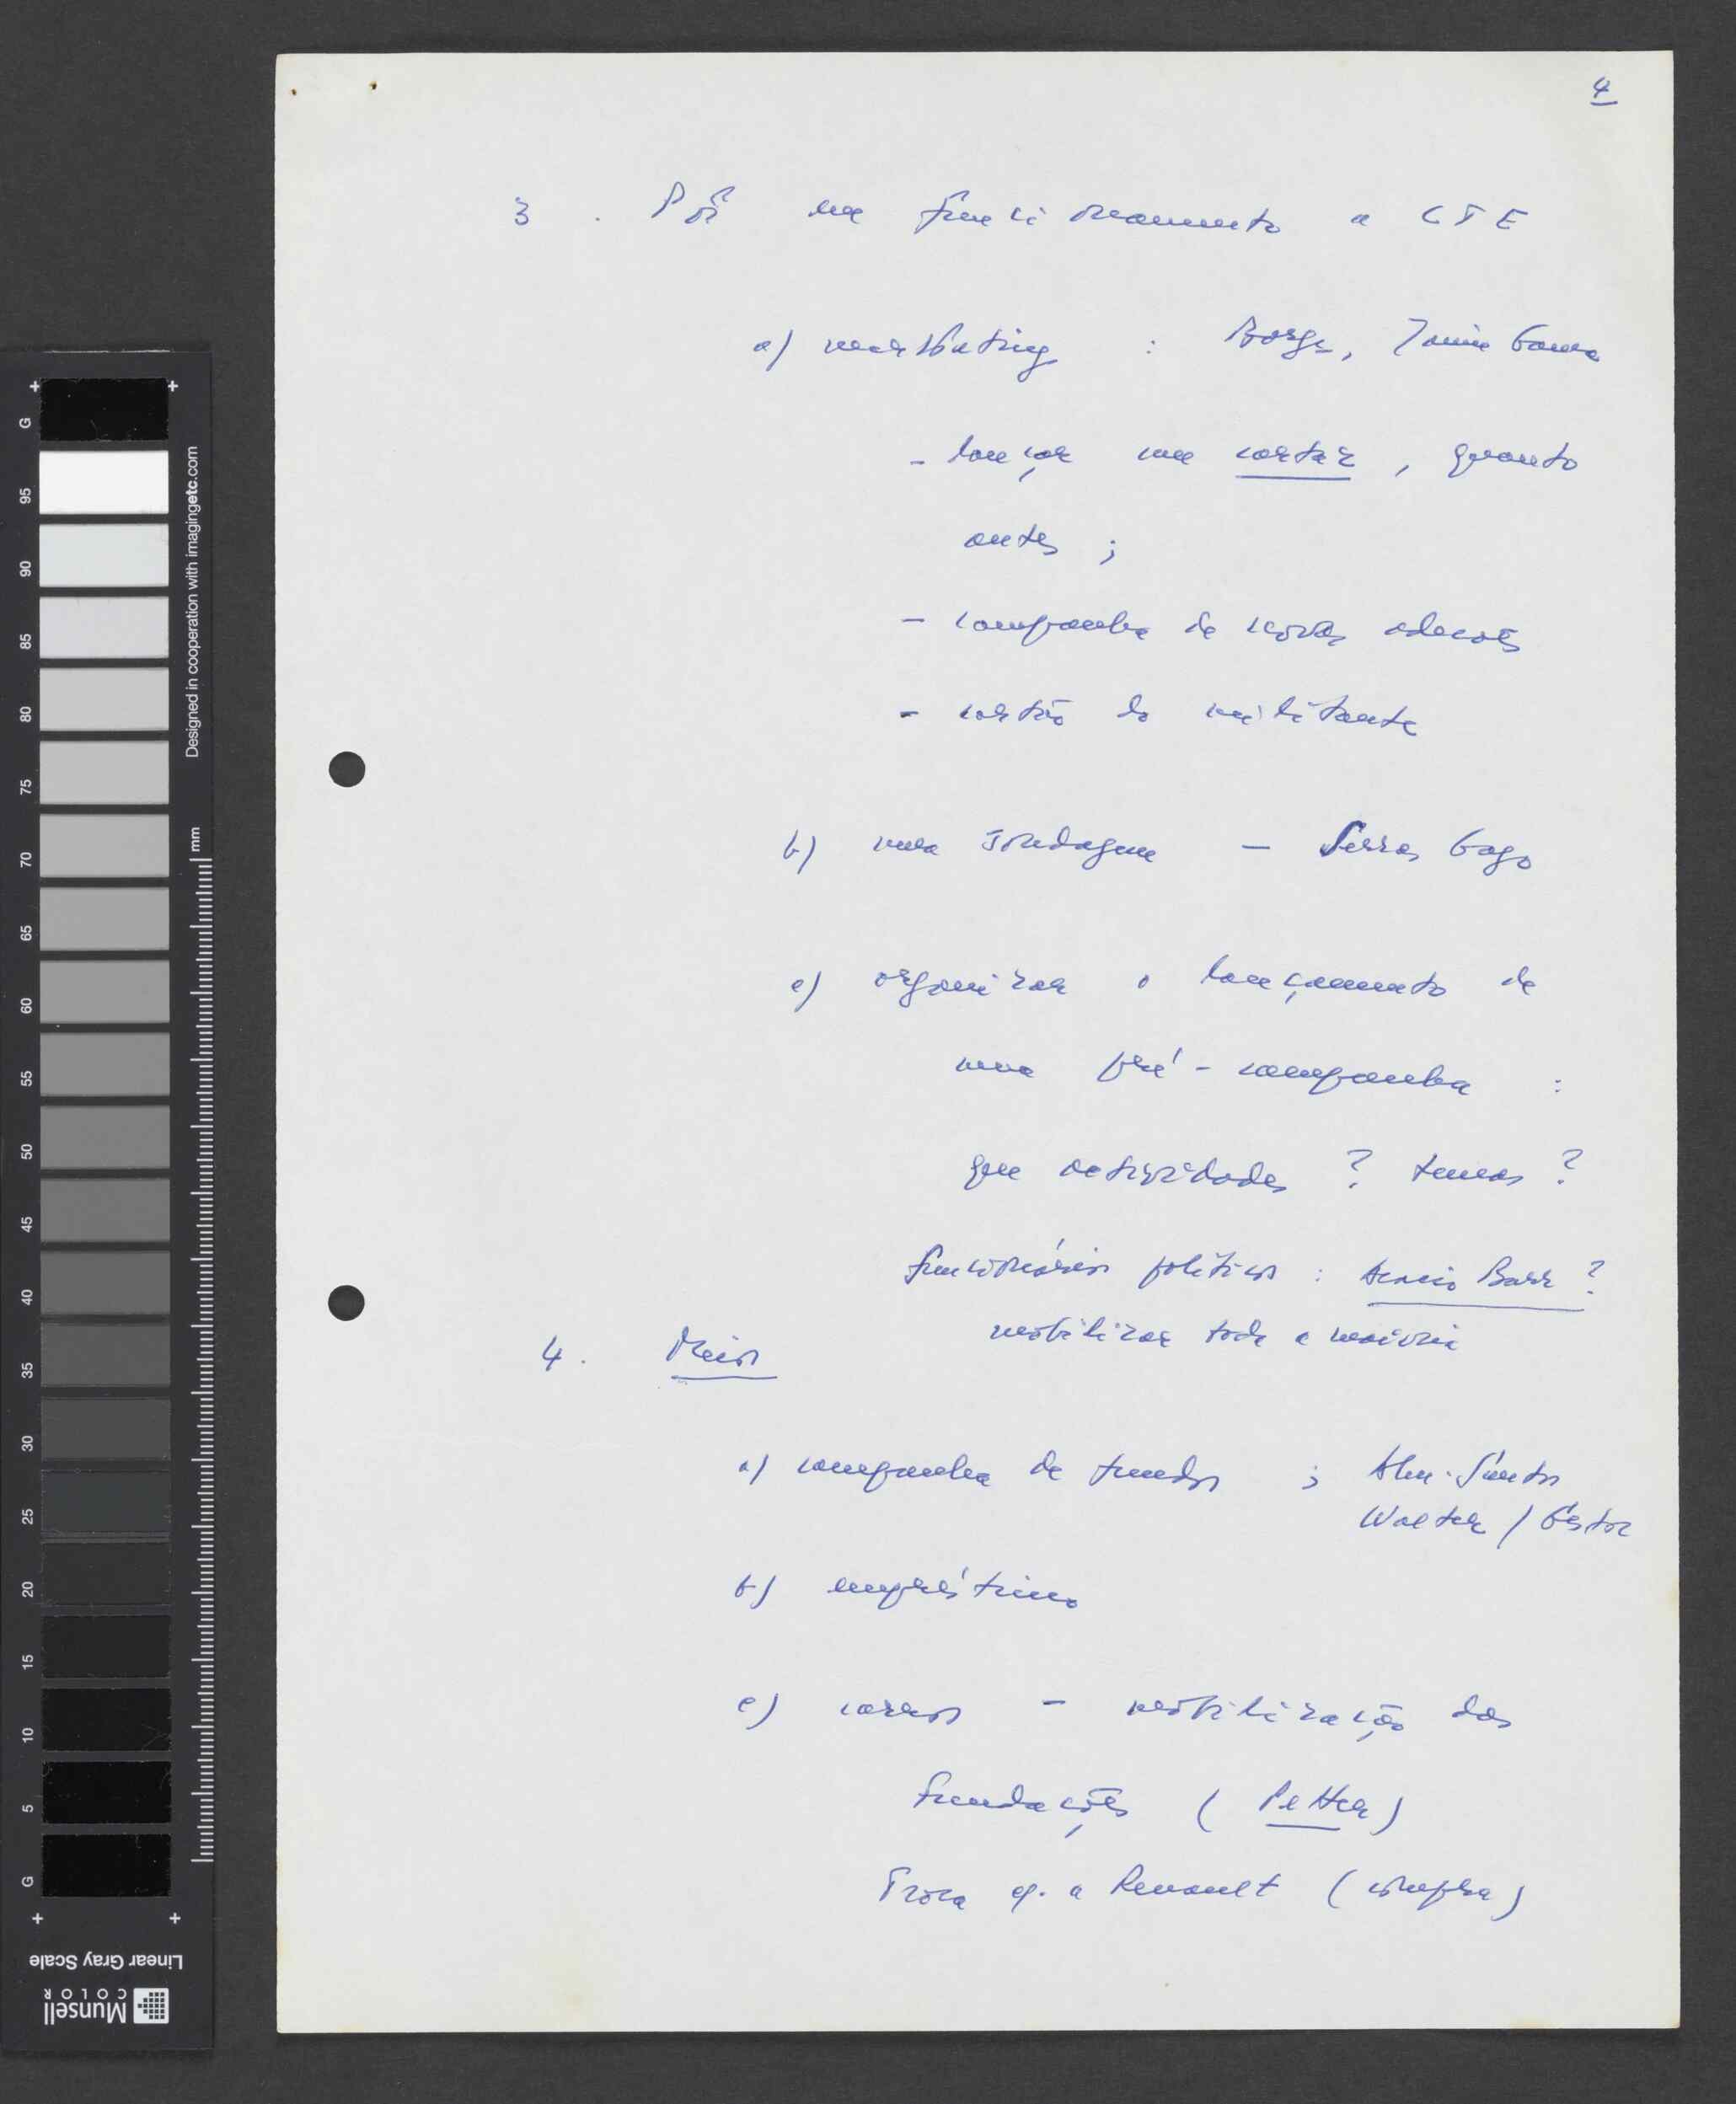 4
3 . Pôr em funcionamento a CTE
a) marketing : Borges, Jaime Gama
- lançar um cartaz , quanto
antes ;
- campanha de novas adesões
- cartão do militante
b) uma sondagem — Serras Gago
c) organizar o lançamento de
uma pré-campanha :
que actividades ? temas ?
funcionários políticos : Acácio Barr ?
mobilizar toda a maioria
4 . Meios
a) campanha de fundos ; Alm. Santos
Walter / Gestor
b) empréstimo
c) carros — mobilização das
fundações ( Petter )
Troca c/ a Renault ( compra )
G
95
90
85
80
75
70
65
60
55
50
45
40
35
30
25
20
15
10
5
G
mm
Designed in cooperation with imagingetc.com
Linear Gray Scale
Munsell
COLOR